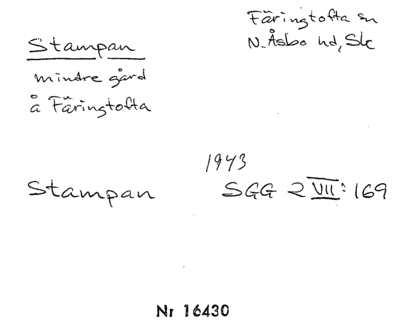 Stampan
mindre gård
å Färingtofta
Färingtofta sn
N. Åsbo hd, Sk
1943
Stampan SGG 2 VII: 169
Nr 16430